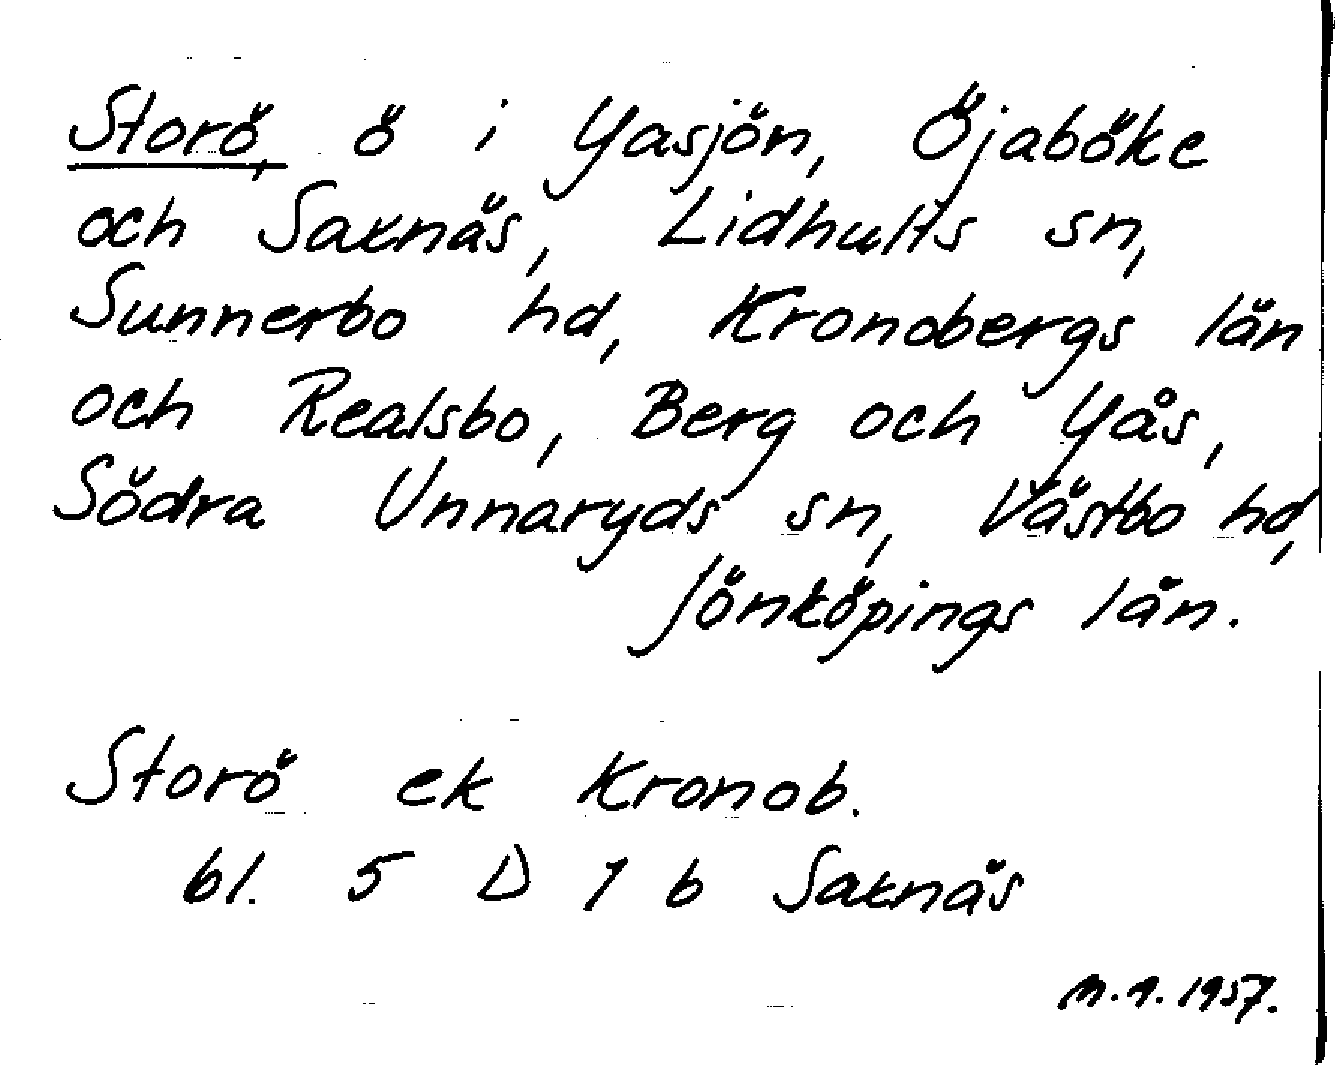 Storö, ö i Yasjön, Öjaböke
och Saxnäs, Lidhults sn,
Sunnerbo hd, Kronobergs län
och Realsbo, Berg och Yås,
Södra Unnaryds sn, Västbo hd,
Jönköpings län.
Storö ek Kronob.
bl. 5 D 1 b Saxnäs
M.A. 1957.